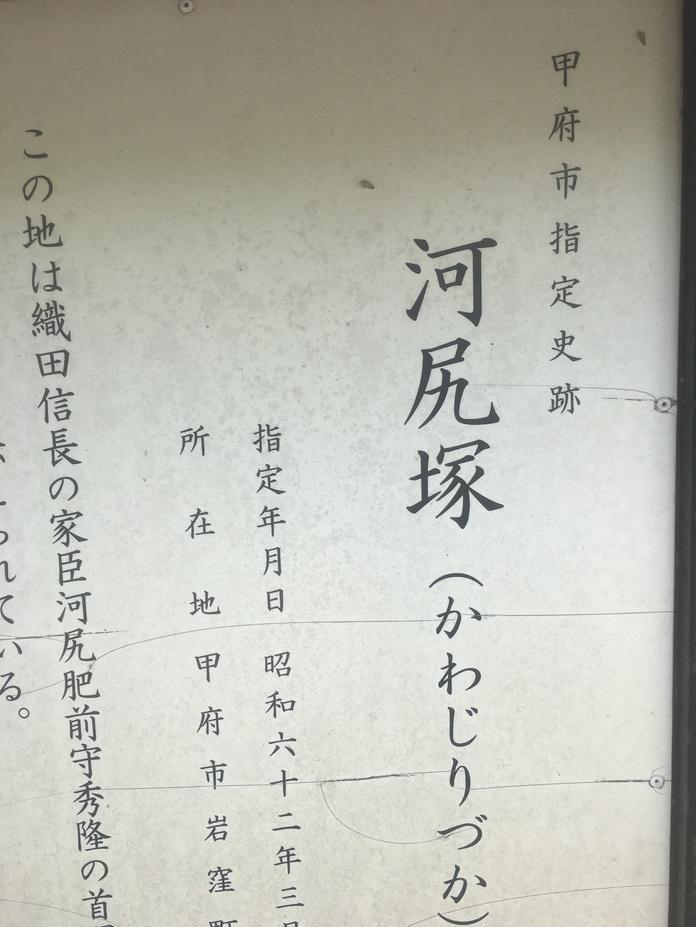 甲府市指定史跡
河尻塚(かわじりづか)
指定年月日 昭和六十二年三月
所在地 甲府市岩窪町
この地は織田信長の家臣河尻肥前守秀隆の首
られている。